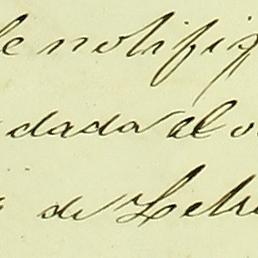 le notifiq
dada al o
de Febr